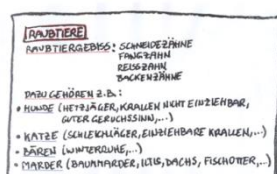 RAUBTIERE
RAUBTIERGEBISS: SCHNEIDEZÄHNE
FANGZAHN
REISSZAHN
BACKENZÄHNE
DAZU GEHÖREN Z.B.:
• HUNDE (HETZJÄGER, KRALLEN NICHT EINZIEHBAR,
GUTER GERUCHSSINN,...)
• KATZE (SCHLEICHJÄGER, EINZIEHBARE KRALLEN,...)
• BÄREN (WINTERRUHE,...)
• MARDER (BAUMMARDER, ILTIS, DACHS, FISCHOTTER,...)